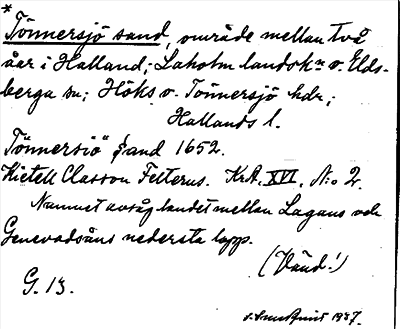 *
Tönnersjö sand, område mellan två
åar i Halland; Laholm landskn o. Elds-
berga sn; Höks o. Tönnersjö hdr;
Hallands l.
Tönnersiö" Sand 1652.
Kietell Classon Felterus. KrA. XVI. N:o 2.
Namnet avsåg landet mellan Lagans och
Genevadsåns nedersta lopp.
(Vänd!)
G. 13.
1937.